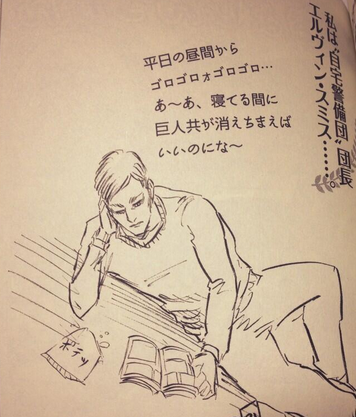 私は“自宅警備団”団長
エルヴィン・スミス……。
平日の昼間から
ゴロゴロォゴロゴロ…
あ〜あ、寝てる間に
巨人共が消えちまえば
いいのにな〜
ポテツ